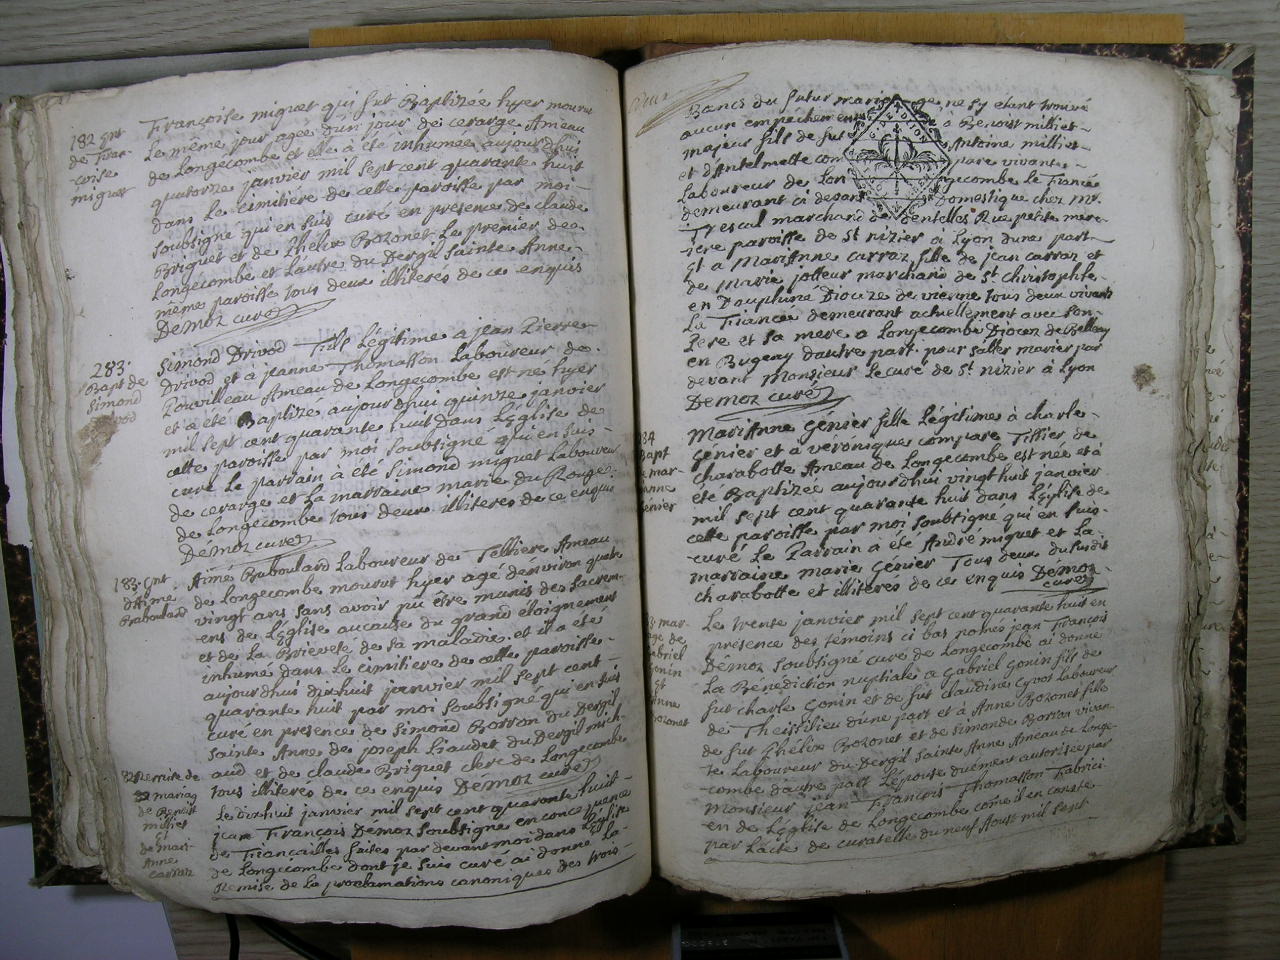 182 gnt
de Fran-
coise
miguet
Françoise miguet qui fut Baptizée hyer mourut
Le même jour agée d'un jour de cerarge Ameau
de Longecombe et elle à été inhumée aujourdhui
quatorze janvier mil sept cent quarante huit
dans Le cimitiére de cette paroisse par moi
soubsigné qui en suis curé en présence de claude
Briguet et de Phelix Bozonet Le premier de
Longecombe et Lautre du Dergil sainte Anne
même paroisse tous deux illiterés de ce enquis
Demoz curé
283.
Bapt de
Simond
Drivod
Simond Drivod Fils Légitime à jean Pierre
Drivod et à jeanne Thomasson Laboureur de
Ameau de Longecombe est né hyer
et à été Baptizé aujourdhui quinze janvier
mil sept cent quarante huit dans Léglise de
cette paroisse par moi soubsigné qui en suis
curé Le parrain à été Simond miguet Laboureur
de cerarge et La marraine marie du Rouge
de Longecombe tous deux illiteres de ce enquis
Demoz curé
183. gnt
d'Aimé
Braboulard
Aimé Braboulard Laboureur de Telliere Ameau
de Longecombe mourut hyer agé denviron quatre
vingt ans sans avoir pu être munis des sacrem-
ens de Léglise aucause du grand éloignement
et de La Briéveté de sa maladie et il a été
inhumé dans Le cimitiere de cette paroisse
aujourdhui dixhuit janvier mil sept cent
quarante huit par moi soubsigné qui en suis
curé en présence de Simond Borron du Dergil
sainte Anne de joseph Liaudet du Dergil mich-
aud et de claude Briguet clerc de Longecombe
tous illiteres de ce enquis Demoz curé
Remise de
mariag
de Benoist
milliet
et
de Mari-
Anne
carraz
Le dixhuit janvier mil sept cent quarante huit
jean François Demoz soubsigné en concequence
de Fiançailles faites par devant moi dans Léglise
de Longecombe dont je suis curé ai donné La
Remise de La proclamations canoniques des trois
Bancs du futur mariage, ne sy etant trouvé
aucun empêchement à Benoist milliet
majeur fils de fut Antoine milliet
et d'Antelmette com pare vivante
Laboureur de Longecombe le Fiancé
demeurant ci devant Domestique chez mr.
Trescal marchand dentelles Rue petite mer-
iere paroisse de St nizier à Lyon dune part
et à MariAnne carraz fille de jean carraz et
de Marie jolleur marchand de St christophle
en Dauphiné Dioceze de vienne tous deux vivants
La Fiancée demeurant actuellement avec son
Pere et sa mere à Longecombe Diocez de Bellay
en Bugeay dautre part. pour saller marier par
devant Monsieur Le curé de St nizier à Lyon
Demoz curé
284
Bapt
de mar-
ianne
Génier
MariAnne Génier fille Légitime à charle
Génier et à véronique compare Tissier de
charabotte Ameau de Longecombe est née et à
été Baptizée aujourdhui vingt huit janvier
mil sept cent quarante huit dans Léglise de
cette paroisse par moi soubsigné qui en suis
curé Le Parrain à été André miguet et La
marraine marie Génier Tous deux du susdit
charabotte et illiterés de ce enquis Demoz
curé
mar-
age de
Gabriel
Gonin
Et
Anne
Bozonet
Le trente janvier mil sept cent quarante huit en
présence des témoins ci bas només jean François
Démoz soubsigné curé de Longecombe ai donné
La Bénédiction nuptiale à Gabriel Gonin fils de
fut charle Gonin et de fut claudine Cyvot Laboureur
de Theissilieu d'une part et à Anne Bozonet fille
de fut Phélix Bozonet et de simonde Borron vivan-
te Laboureur du Dergil Sainte Anne Ameau de Longe-
combe d'autre part L'épouse duëment autorisée par
Monsieur jean François Thomasson Fabrici-
en de Léglise de Longecombe come il en conste
par Lacte de curatelle du neuf Aoust mil sept